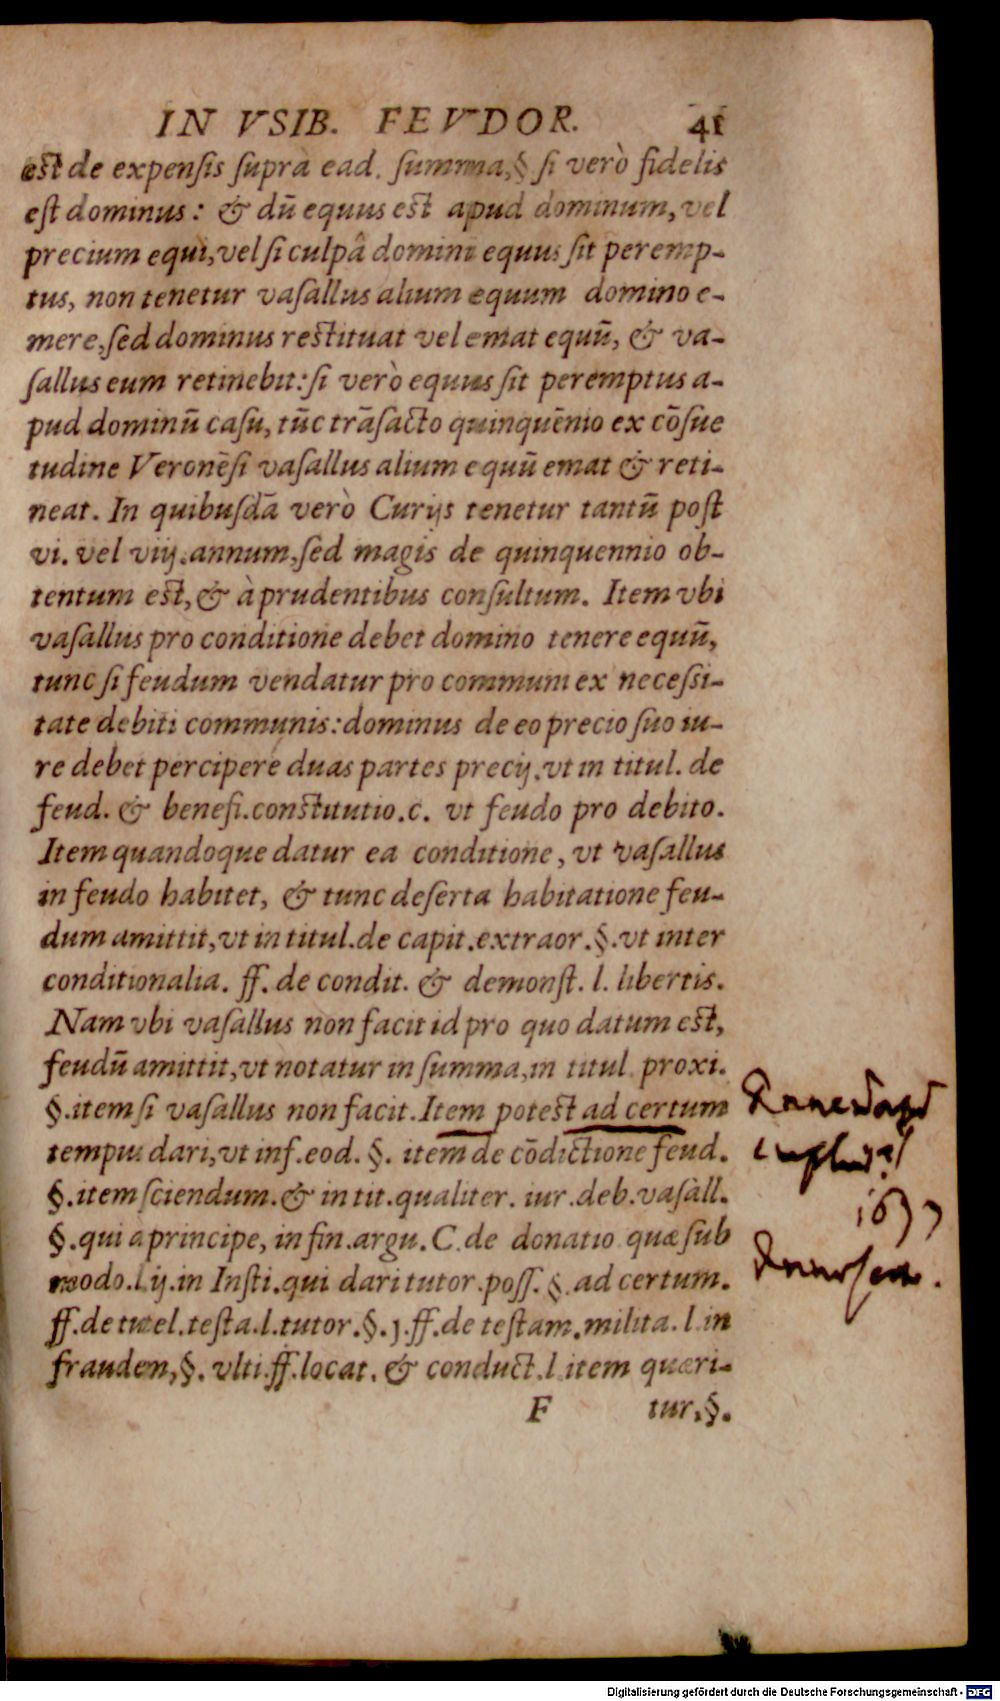 IN VSIB. FEVDOR. 41
est de expensis suprà ead. summa, § si verò fidelis
est dominus: & dū equus est apud dominum, vel
precium equi, vel si culpâ domini equus sit peremp-
tus, non tenetur vasallus alium equum domino e-
mere, sed dominus restituat vel emat equū, & va-
sallus eum retinebit: si verò equus sit peremptus a-
pud dominū casu, tūc trāsacto quinquēnio ex cōsue
tudine Veronēsi vasallus alium equū emat & reti-
neat. In quibusdā verò Curijs tenetur tantū post
vi. vel viij. annum, sed magis de quinquennio ob-
tentum est, & à prudentibus consultum. Item vbi
vasallus pro conditione debet domino tenere equū,
tunc si feudum vendatur pro communi ex necessi-
tate debiti communis: dominus de eo precio suo iu-
re debet percipere duas partes precij. vt in titul. de
feud. & benefi. constitutio. c. vt feudo pro debito.
Item quandoque datur ea conditione, vt vasallus
in feudo habitet, & tunc deserta habitatione feu-
dum amittit, vt in titul. de capit. extraor. §. vt inter
conditionalia. ff. de condit. & demonst. l. libertis.
Nam vbi vasallus non facit id pro quo datum est,
feudū amittit, vt notatur in summa, in titul. proxi.
§. item si vasallus non facit. Item potest ad certum
tempus dari, vt inf. eod. §. item de cōdictione feud.
§. item sciendum. & in tit. qualiter. iur. deb. vasall.
§. qui à principe, in fin. argu. C. de donatio. quæ sub
modo. l. ij. in Insti. qui dari tutor. poss. §. ad certum.
ff. de tutel. testa. l. tutor. §. j. ff. de testam. milita. l. in
fraudem, §. vlti. ff. locat. & conduct. l. item quæri-
F tur, §.
Digitalisierung gefördert durch die Deutsche Forschungsgemeinschaft - DFG